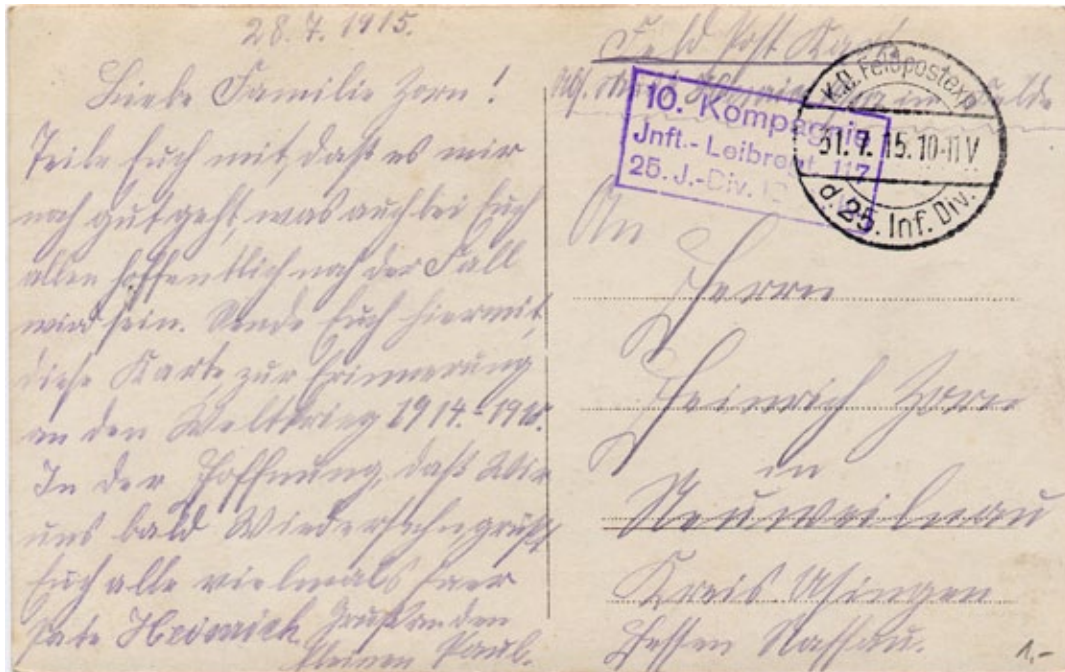 28.7.1915.
Liebe Familie Zorn!
Teile Euch mit, daß es mir
noch gut geht, was auch bei Euch
allen hoffentlich noch der Fall
wird sein. Sende Euch hiermit,
diese Karte zur Erinnerung
an den Weltkrieg 1914-1915.
In der Hoffnung, daß Wir
uns bald Wiedersehn grüßt
Euch alle vielmals Euer
Pate Heinrich. Gruß an den
kleinen Paul.
Feld Post Karte
im Felde
10. Kompagnie
Jnft.-Leibregt. 117
25. J.-Div.
K.D. Feldpostexp.
31.7.15.10-11V
d. 25. Inf. Div.
An
Herrn
Heinrich Zorn
in
Neuweilnau
Kreis Usingen
Hessen Nassau.
1,-